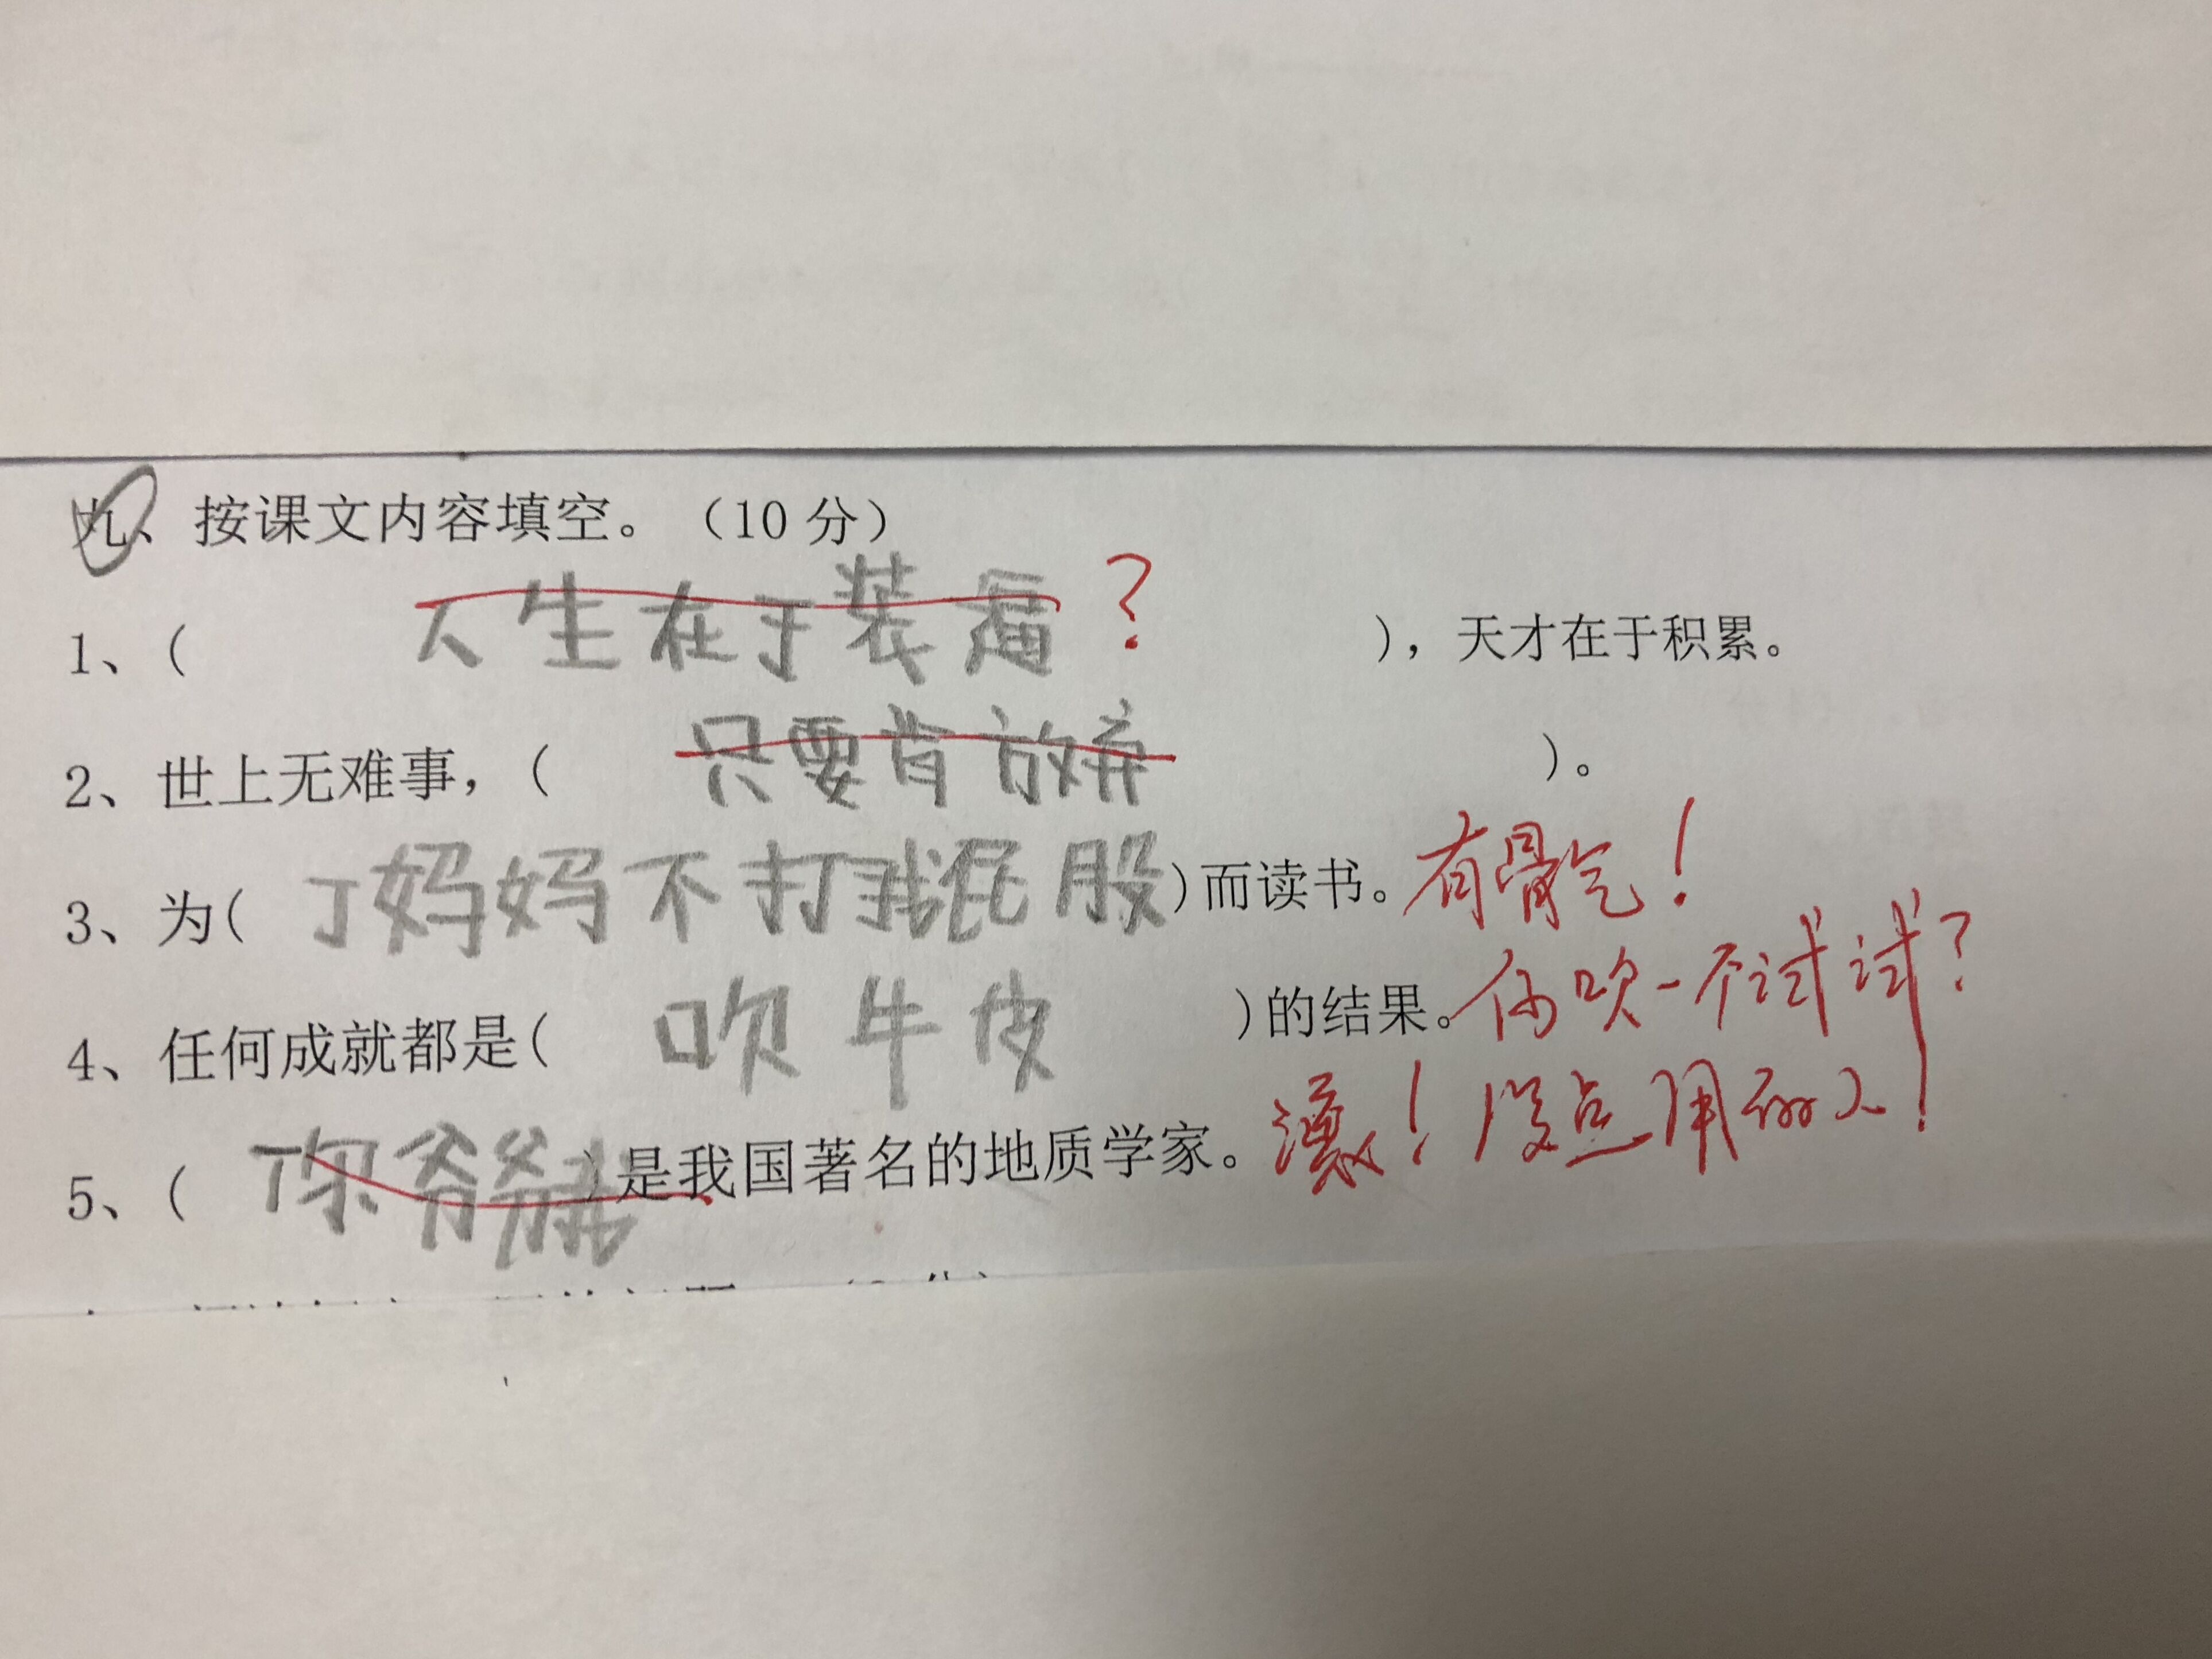 九、按课文内容填空。（10 分）
1、（ 人生在于装逼 ？ ），天才在于积累。
2、世上无难事，（ 只要肯放弃 ）。
3、为（ 了妈妈不打我屁股 ）而读书。有骨气！
4、任何成就都是（ 吹牛皮 ）的结果。你吹一个试试？
5、（ 你爷爷 ）是我国著名的地质学家。滚！没点用的人！